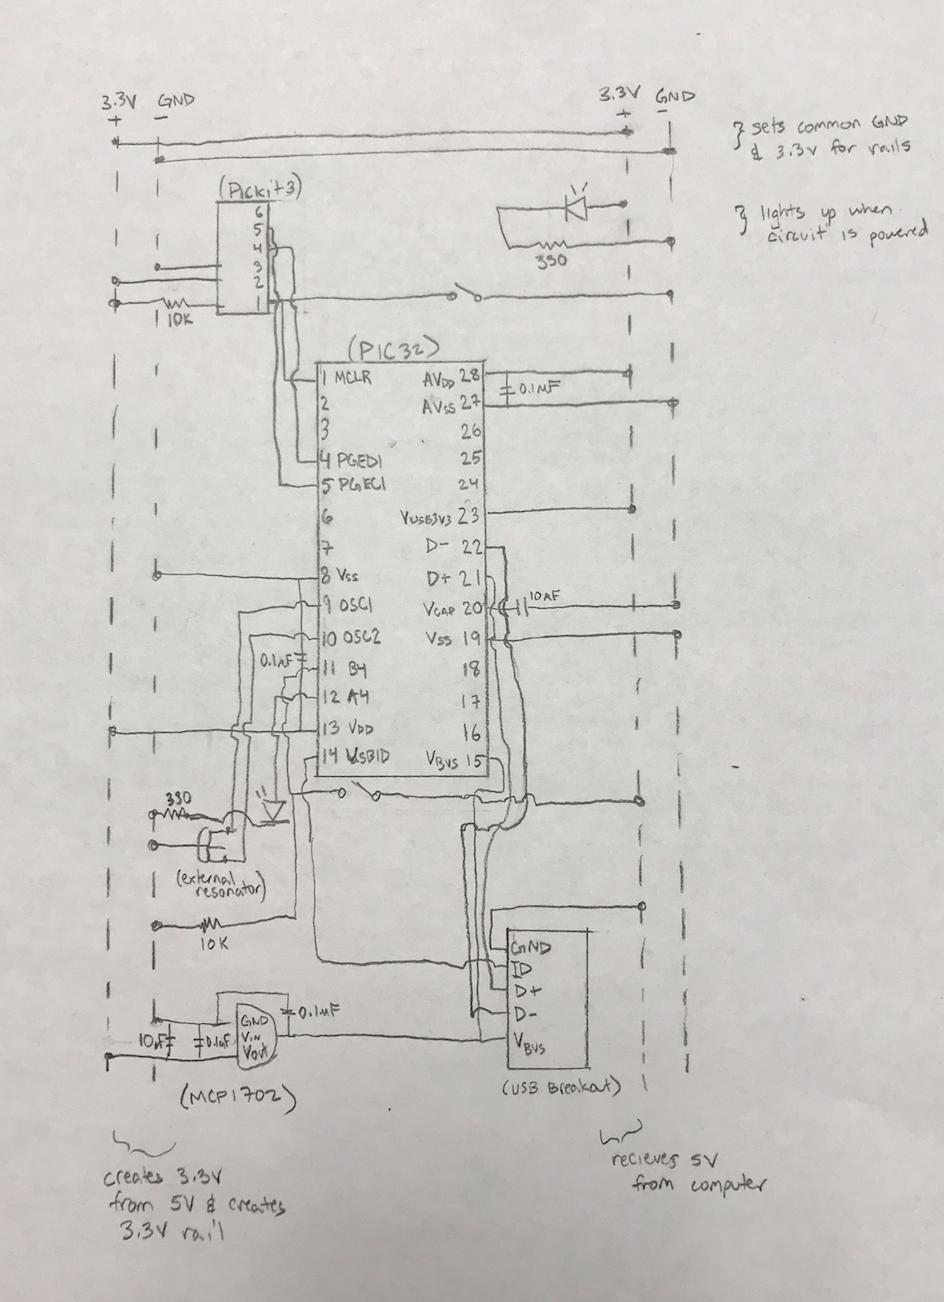 3.3V GND
+ −
3.3V GND
+ −
} sets common GND
& 3.3V for rails
(Pickit3)
6
5
4
3
2
1
10K
330
} lights up when
circuit is powered
(PIC32)
1 MCLR
2
3
4 PGED1
5 PGEC1
6
7
8 Vss
9 OSC1
10 OSC2
11 B4
12 A4
13 VDD
14 USBID
AVDD 28
AVss 27
26
25
24
VUSB3V3 23
D- 22
D+ 21
VCAP 20
Vss 19
18
17
16
VBUS 15
0.1uF
10uF
0.1uF
330
(external
resonator)
10K
GND
VIN
Vout
10uF
0.1uF
0.1uF
(MCP1702)
GND
ID
D+
D-
VBUS
(USB Breakout)
creates 3.3V
from 5V & creates
3.3V rail
recieves 5V
from computer